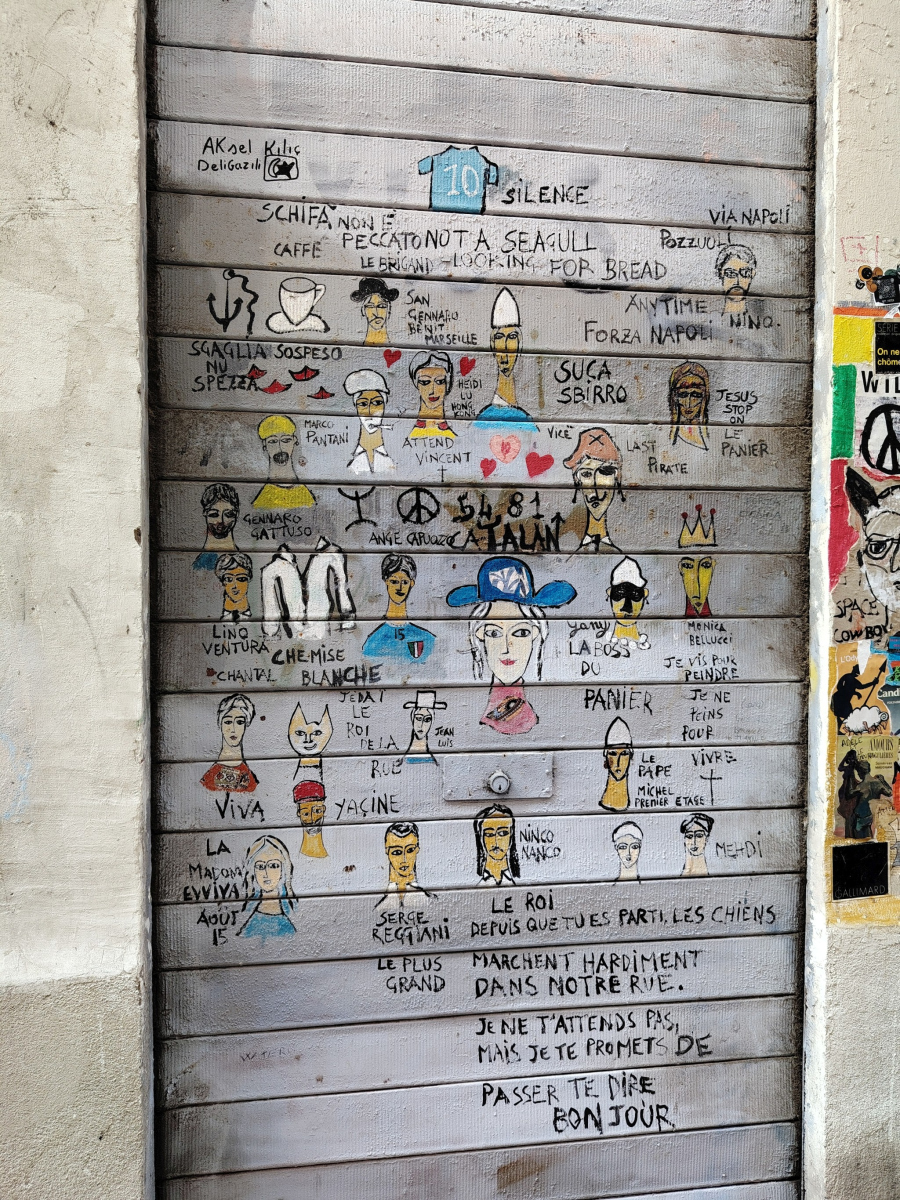 AKsel Kılıç
DeliGazili
10
SILENCE
SCHIFA NON È
PECCATO NOT A SEAGULL
VIA NAPOLI
POZZUOLI
CAFFÈ
LE BRIGAND - LOOKING FOR BREAD
SAN
GENNARO
BÉNIT
MARSEILLE
ANYTIME
NINO.
FORZA NAPOLI
SGAGLIA SOSPESO
NU
SPEZZA
HEIDI
LU
HONG
KONG
SUCA
SBIRRO
JESUS
STOP
ON
LE
PANIER.
MARCO
PANTANI
ATTEND
VINCENT
VICÈ
LAST
PIRATE
GENNARO
GATTUSO
ANGE CAPUOZZO
54 81
CATALAN
LINO
VENTURA
CHEMISE
BLANCHE
CHANTAL
15
yany
LA BOSS
DU
PANIER
MONICA
BELLUCCI
JE VIS POUR
PEINDRE
JE NE
PEINS
POUR
VIVRE
JEDAÏ
LE
ROI
DE LA
RUE
JEAN
LUIS
LE
PAPE
MICHEL
PREMIER ETAGE
VIVA
YAÇINE
LA
MADONN
EVVIVA
AOÛT
15
SERGE
REGGIANI
NINCO
NANCO
MEHDI
LE PLUS
GRAND
LE ROI
DEPUIS QUE TU ES PARTI, LES CHIENS
MARCHENT HARDIMENT
DANS NOTRE RUE.
JE NE T'ATTENDS PAS,
MAIS JE TE PROMETS DE
PASSER TE DIRE
BONJOUR
On ne
chôme
WIL
SPACE
COWBOY
GALLIMARD